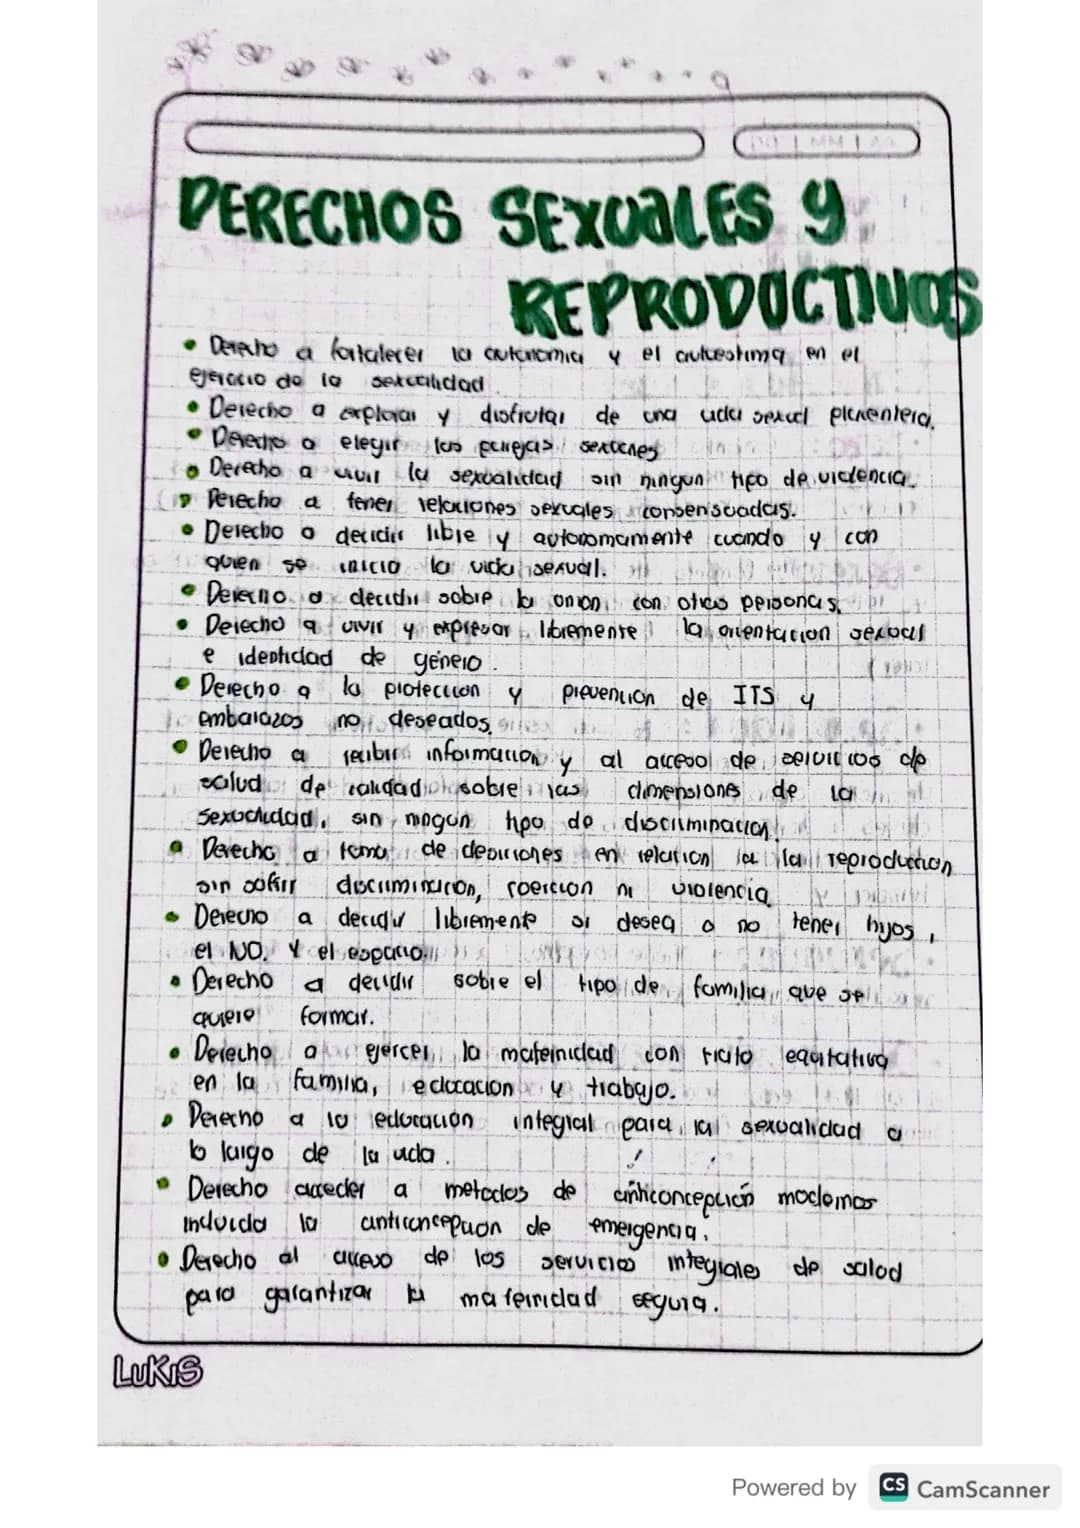 DERECHOS SEXUALES Y
REPRODUCTIVOS
• Derecho a fortalecer la autonomia y el autoestima en el
ejercicio de la sexualidad
• Derecho a explorar y disfrutar de una vida sexual placentera.
• Derecho a elegir las parejas sexuales
• Derecho a vivir la sexualidad sin ningun tipo de violencia.
• Derecho a tener relaciones sexuales consensuadas.
• Derecho a decidir libre y autonomamente cuando y con
quien se inicio la vida sexual.
• Derecho a decidir sobre la union con otras personas.
• Derecho a vivir y expresar libremente la orientacion sexual
e identidad de género.
• Derecho a la proteccion y prevencion de ITS y
embarazos no deseados.
• Derecho a recibir informacion y al acceso de servicios de
salud de calidad sobre las dimensiones de la
sexualidad, sin ningun tipo de discriminacion.
• Derecho a toma de desiciones en relation a la reproduction
sin sofrir discriminacion, coercion ni violencia
• Derecho a decidir libremente si desea o no tener hijos,
el NO. Y el espacio.
• Derecho a decidir sobre el tipo de familia que se
quiere formar.
• Derecho a ejercer la maternidad con trato equitativo
en la familia, educacion y trabajo.
• Derecho a la educacion integral para la sexualidad a
lo largo de la vida.
• Derecho acceder a metodos de anticoncepción modernos
incluida la anticoncepcion de emergencia.
• Derecho al acceso de los servicios integrales de salud
para garantizar la maternidad segura.
LUKIS
Powered by CS CamScanner